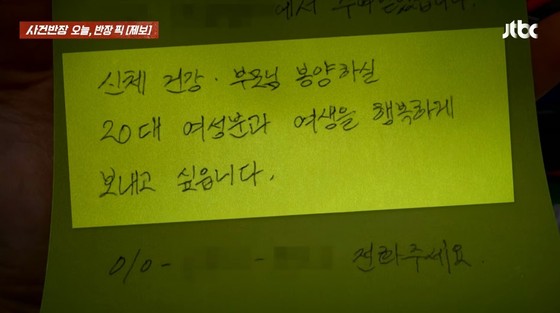 사건반장 오늘, 반장 픽 [제보]
jtbc
신체 건강 · 부모님 봉양하실
20대 여성분과 여생을 행복하게
보내고 싶읍니다.
010-
-
전화주세요.